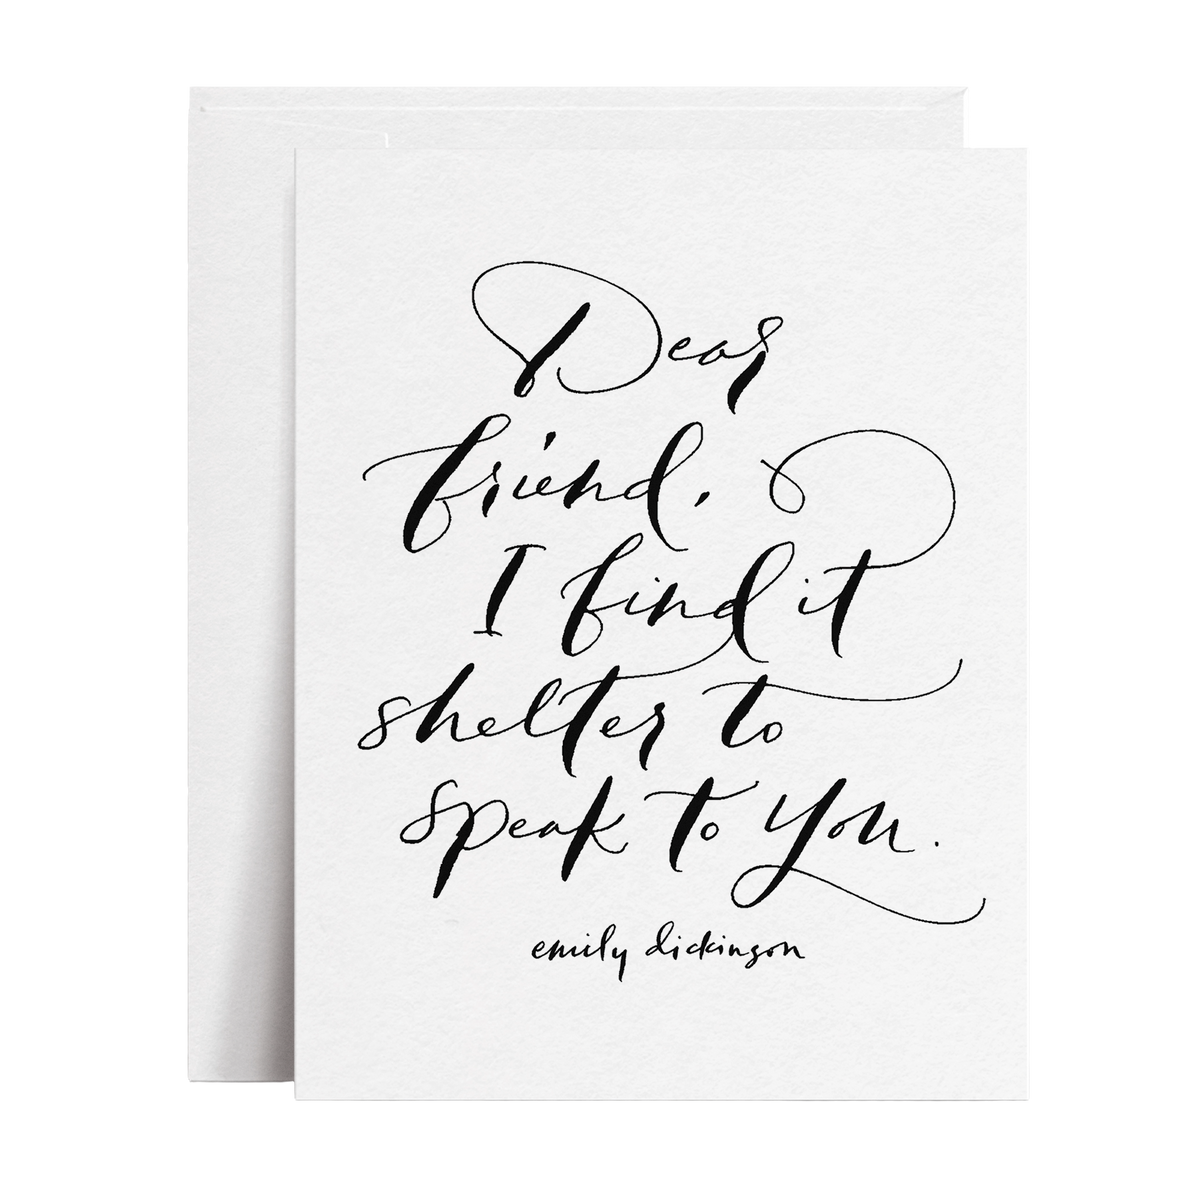 Dear
friend,
I find it
shelter to
speak to you.
emily dickinson